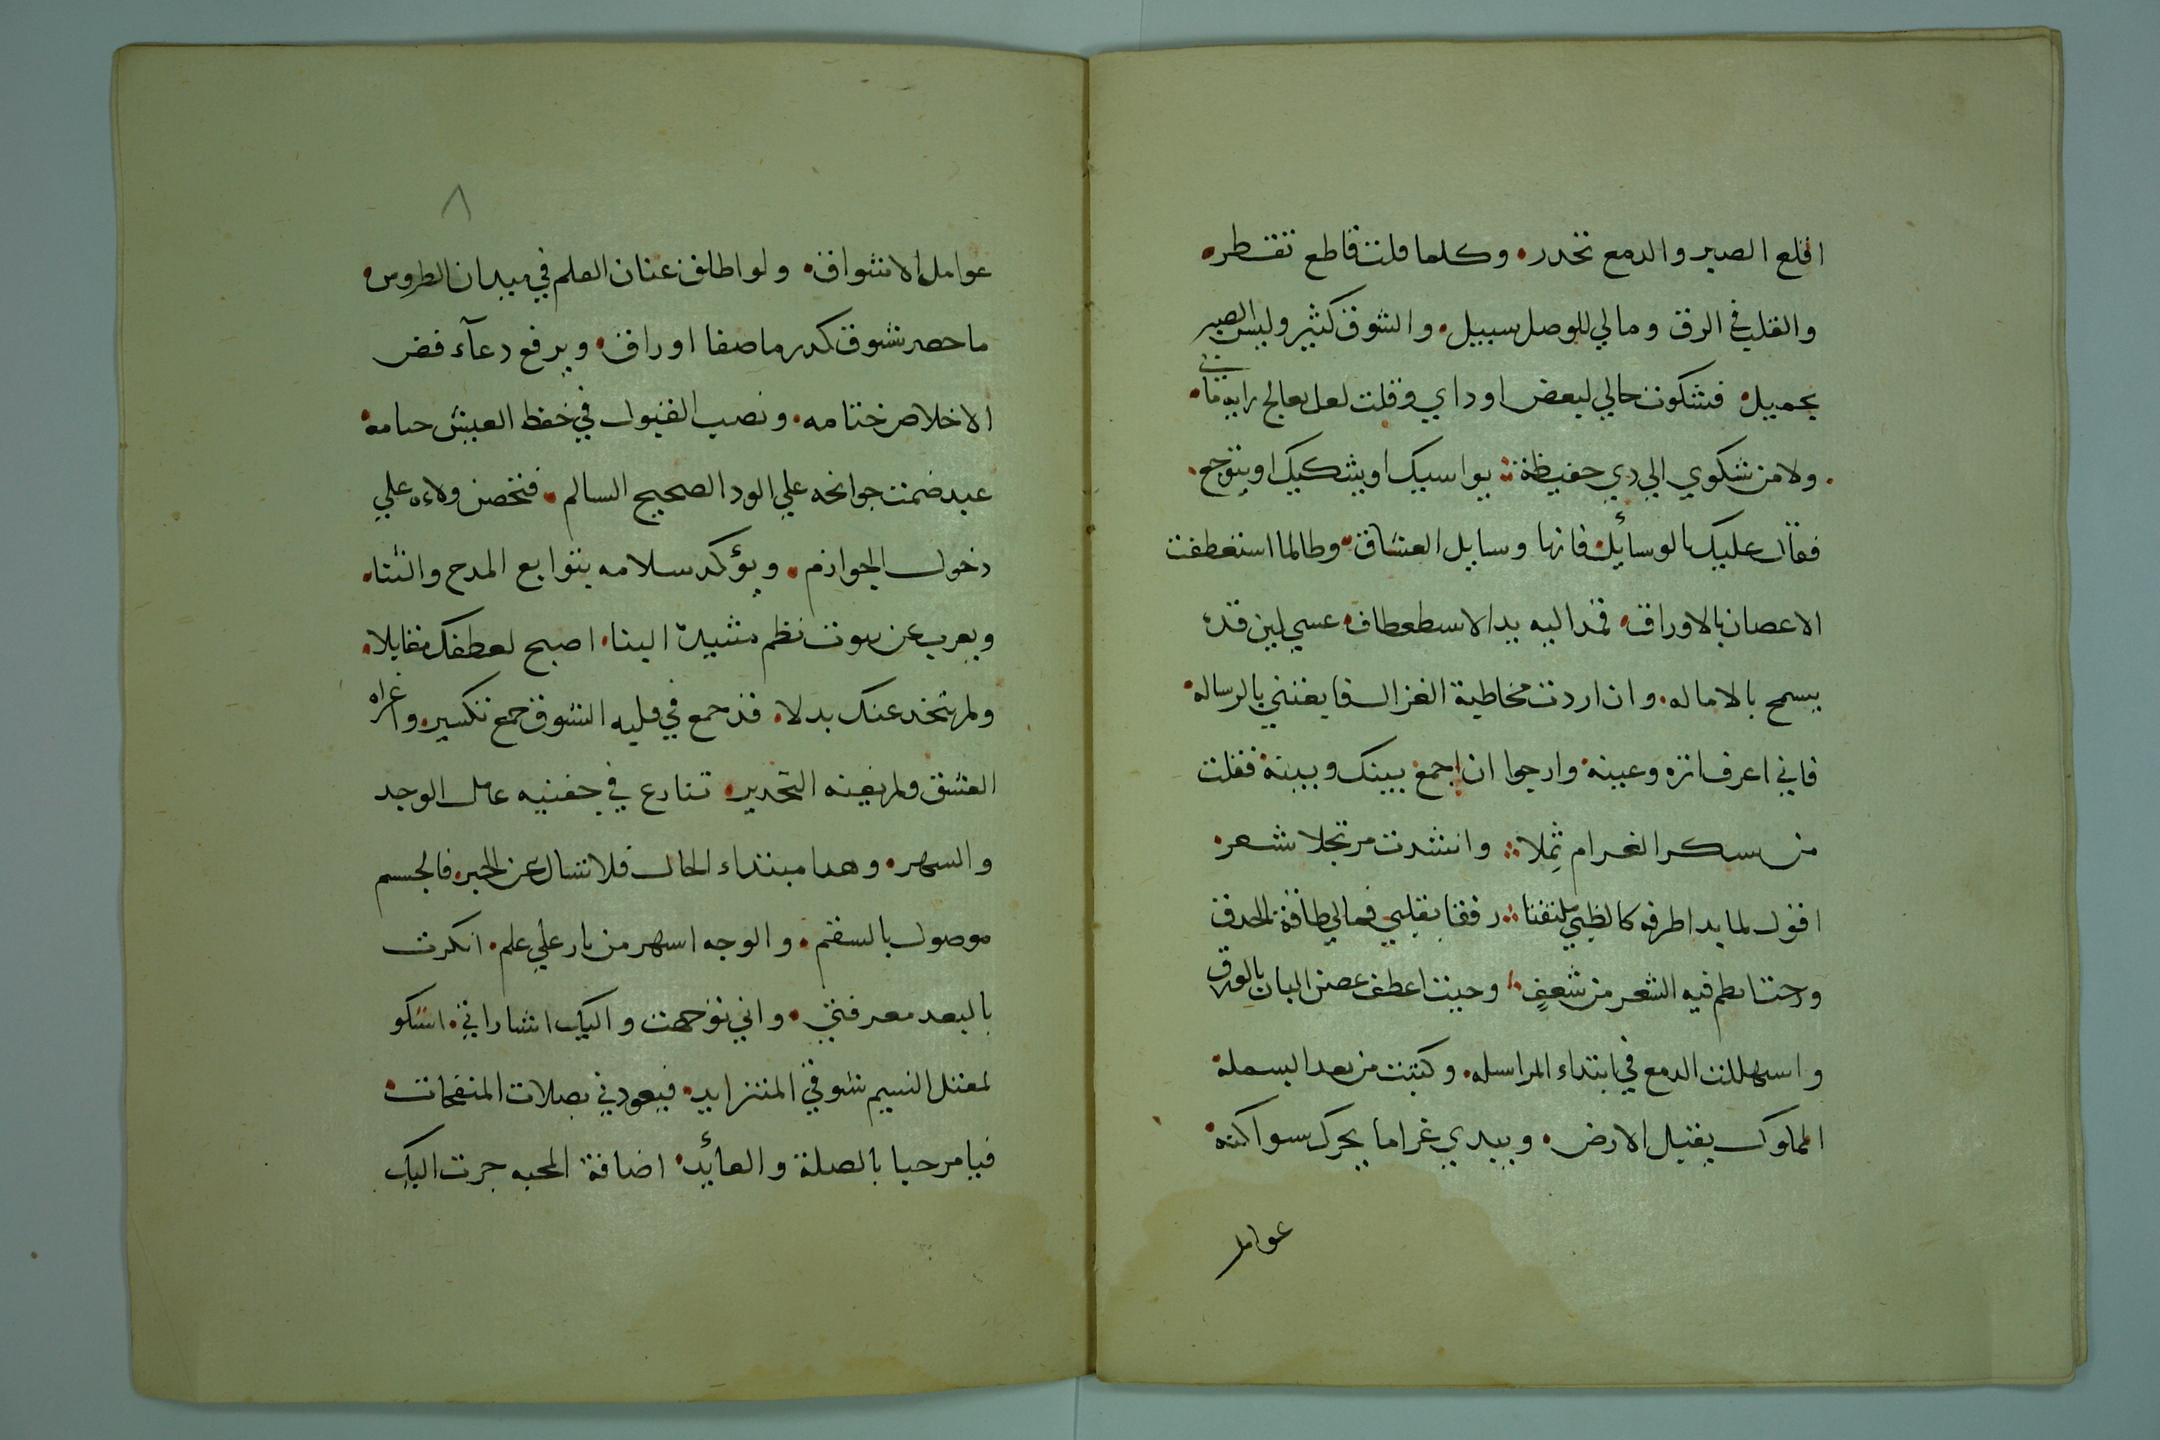 اقلع الصبر والدمع تحدر وكلما قلت قاطع تقطر
والقلب في الرق ومالي للوصل سبيل والشوق كثير وليس الصبر
بجميل فشكوت حالي لبعض اوداي وقلت لعل يعالج رايه في
ولا من شكوي الي ذي حفيظة يواسيك او يشكيك او يتوجع
فقال عليك بالوسائل فانها وسايل العشاق وطالما استعطفت
الاغصان بالاوراق فمد اليه يد الاسطعطاف عسي لين قده
يسمح بالاماله وان اردت مخاطبة الغزال فايغنني بالرساله
فاني اعرف اثره وعينه وارجوا ان اجمع بينك وبينه فقلت
من سكر الغرام ثملا وانشدت مرتجلا شعر
اقول لما بدا طرفه كالظبي ملتفتا رفقا بقلبي فمالي طاقة الحدق
ورحت انظم فيه الشعر من شغف وجيت اعطف غصن البان بالورق
واستهللت الدمع في ابتداء المراسله وكتبت من بعد البسملة
المملوك يقبل الارض ويبدي غراما يحرك سواكنه
عوامل
٨
عوامل الاشواق ولو اطلق عنان القلم في ميدان الطروس
ما حصر شوق كدر ما صفا اوراق ويرفع دعآء فض
الاخلاص ختامه ونصب القبول في خفظ العيش خيامه
عبد ضمنت جوانحه علي الود الصحيح السالم فتخصن ولاءه علي
دخول الجوازم ويؤكد سلامه بتوابع المدح والثنا
ويعرب عن بيوت نظم مشيدة البنا اصبح لعطفك مقابلا
ولم يتخذ عنك بدلا قد جمع في قلبه الشوق جمع تكسير واغراه
العشق ولم يغنه التحدير تنازع في جفنيه عامل الوجد
والسهر وهدا مبتداء الحال فلا تسال عن الخبر فالجسم
موصول بالسقم والوجه اسهر من نار علي علم انكرت
بالبعد معرفتي واني توجهت واليك اشاراتي اشكو
لمعتل النسيم شوقي المتزايد فيعودني بصلات المنفحات
فيا مرحبا بالصلة والعائد اضافة المحبه جرت اليك